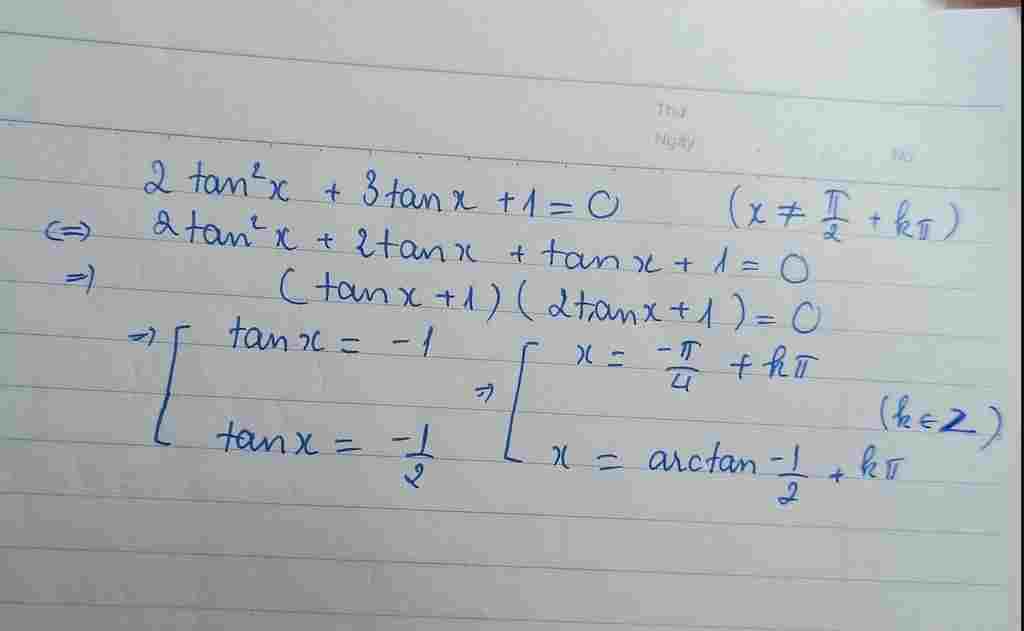 Thứ
Ngày
No
2 tan²x + 3tanx + 1 = 0 (x ≠ π/2 + kπ)
<=> 2tan²x + 2tanx + tanx + 1 = 0
=> (tanx + 1)(2tanx + 1) = 0
=> [ tanx = -1 => [ x = -π/4 + kπ
(k ∈ Z)
tanx = -1/2 x = arctan -1/2 + kπ